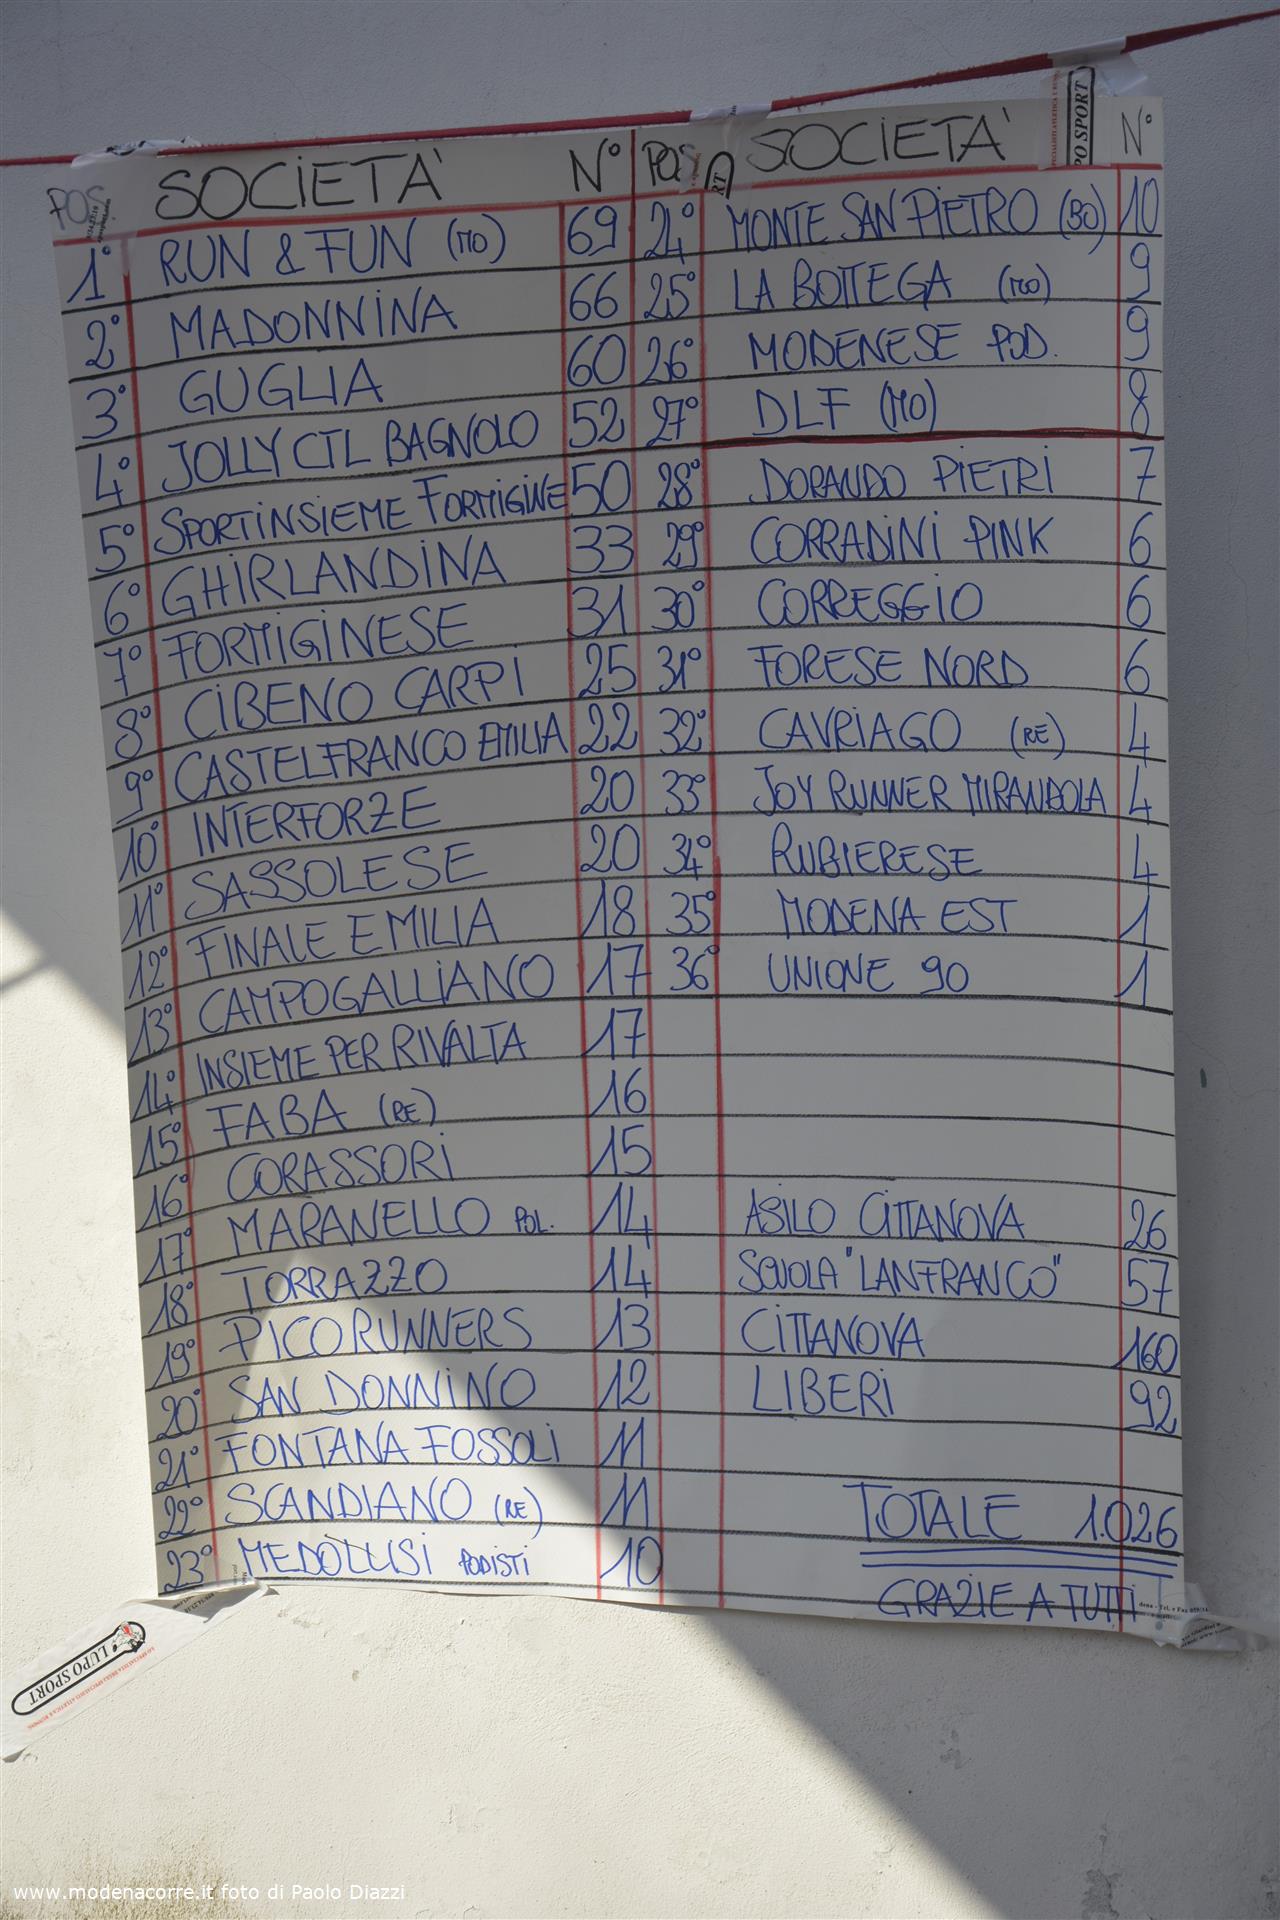 POS SOCIETA' N°
1° RUN & FUN (MO) 69
2° MADONNINA 66
3° GUGLIA 60
4° JOLLY CTL BAGNOLO 52
5° SPORTINSIEME FORMIGINE 50
6° GHIRLANDINA 33
7° FORMIGINESE 31
8° CIBENO CARPI 25
9° CASTELFRANCO EMILIA 22
10° INTERFORZE 20
11° SASSOLESE 20
12° FINALE EMILIA 18
13° CAMPOGALLIANO 17
14° INSIEME PER RIVALTA 17
15° FABA (RE) 16
16° CORASSORI 15
17° MARANELLO POL. 14
18° TORRAZZO 14
19° PICO RUNNERS 13
20° SAN DONNINO 12
21° FONTANA FOSSOLI 11
22° SCANDIANO (RE) 11
23° MEDOLUSI PODISTI 10
POS SOCIETA' N°
24° MONTE SAN PIETRO (BO) 10
25° LA BOTTEGA (MO) 9
26° MODENESE POD. 9
27° DLF (MO) 8
28° DORANDO PIETRI 7
29° CORRADINI PINK 6
30° CORREGGIO 6
31° FORESE NORD 6
32° CAVRIAGO (RE) 4
33° JOY RUNNER MIRANDOLA 4
34° RUBIERESE 4
35° MODENA EST 1
36° UNIONE 90 1
ASILO CITTANOVA 26
SCUOLA "LANFRANCO" 57
CITTANOVA 160
LIBERI 92
TOTALE 1.026
GRAZIE A TUTTI
PO SPORT
LUPO SPORT
www.modenacorre.it foto di Paolo Diazzi